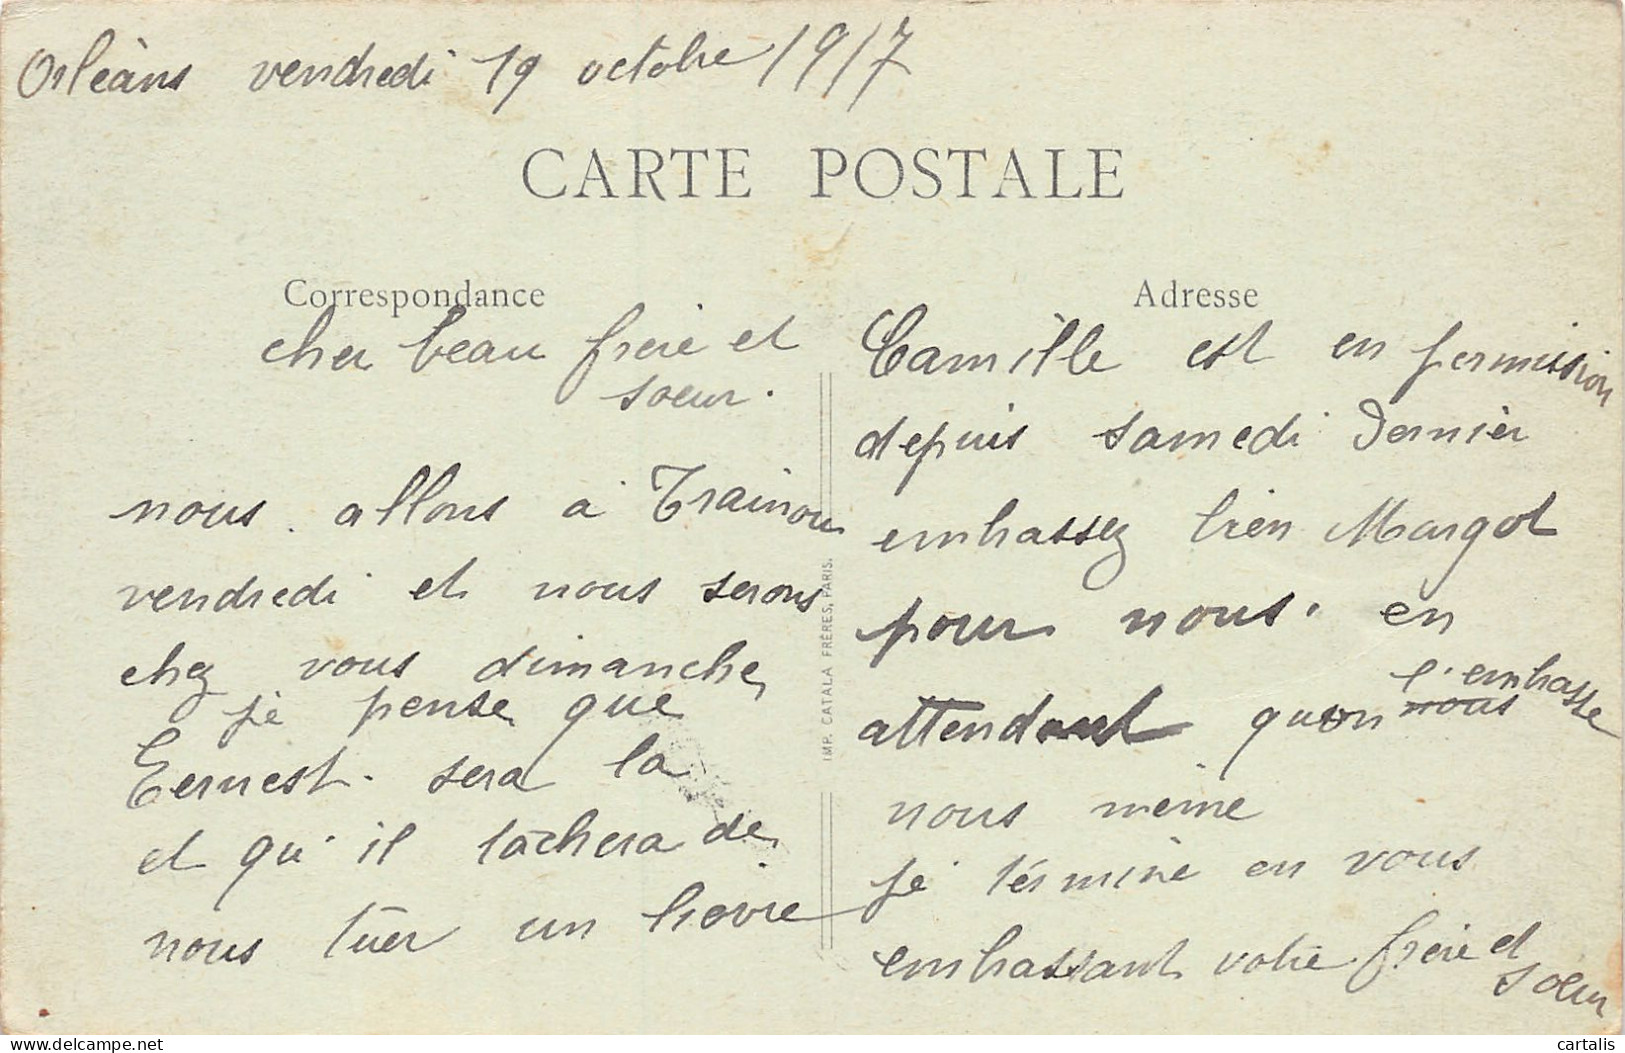 Orléans vendredi 19 octobre 1917
CARTE POSTALE
Correspondance
cher beau frère et
soeur.
nous allons à Trainou
vendredi et nous serons
chez vous dimanche,
je pense que
Eernest. sera la
et qu'il tâchera de
nous tuer un lievre
IMP. CATALA FRÈRES, PARIS.
Adresse
Camille est en permission
depuis samedi dernier
embrassez bien Margot
pour nous. en
attendant quon nous l'embrasse
nous même
je términe en vous
embrassant votre frère et
soeur
cartalis